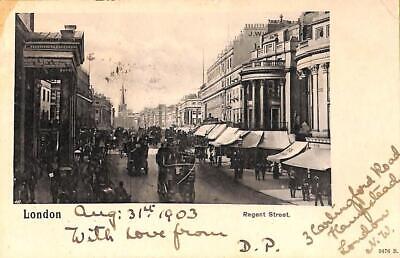 J.W.
London
Regent Street.
Aug: 31st 1903
With love from
D.P.
3 Carlingford Road
Hampstead
London
N.W.
2476 B.